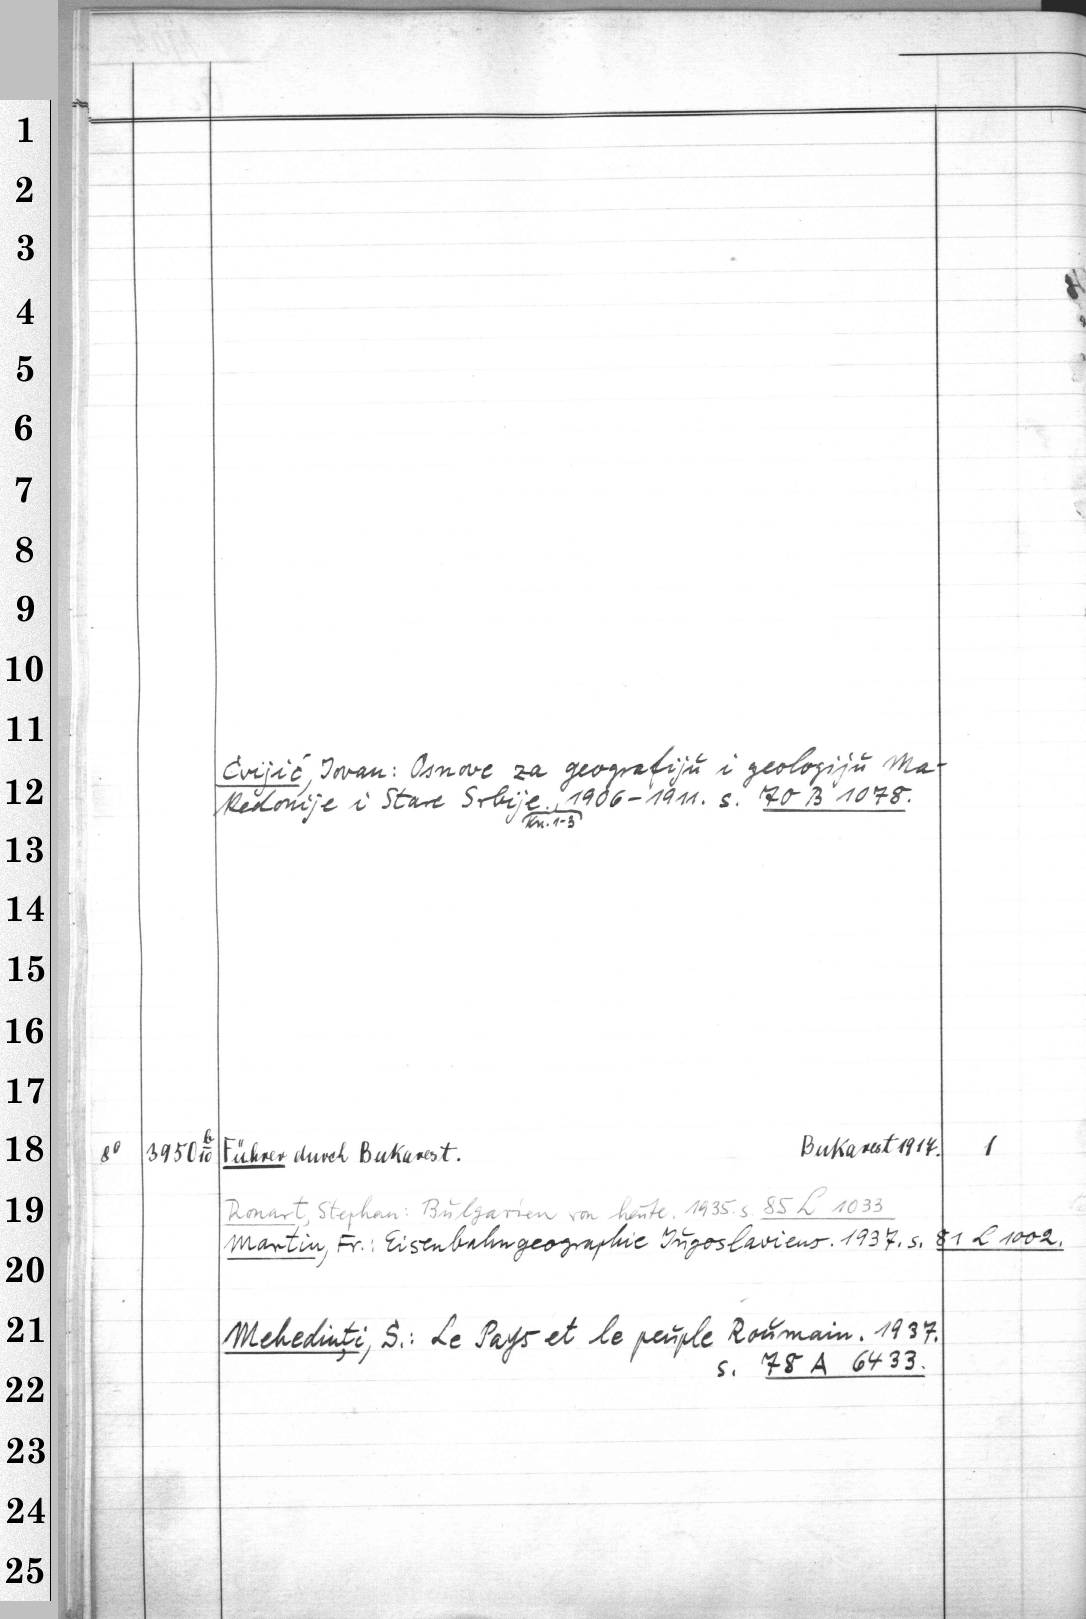 1
2
3
4
5
6
7
8
9
10
11
Cvijić, Jovan: Osnove za geografijŭ i geologijŭ Ma-
12
kedonije i Stare Srbije., 1906-1911. s. 70 B 1078.
Kn. 1-3
13
14
15
16
17
18
8° 3950 b/10 Führer durch Bukarest. Bukarest 1917. 1
19
Ronart, Stephan: Bŭlgarien von heŭte. 1935. s. 85 L 1033
Martin, Fr.: Eisenbahngeographie Jŭgoslaviens. 1937. s. 81 L 1002.
20
21
Mehedinți, S.: Le Pays et le peŭple Roŭmain. 1937.
s. 78 A 6433.
22
23
24
25